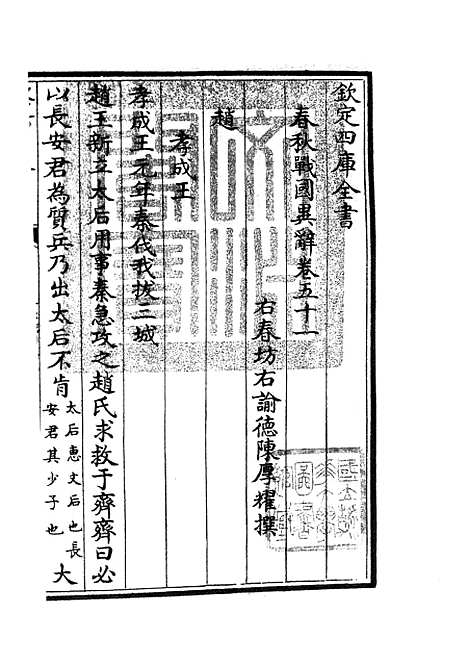 欽定四庫全書
春秋戰國異辭卷五十一
右春坊右諭德陳厚耀撰
趙
孝成王
孝成王元年秦伐我拔三城
趙王新立太后用事秦急攻之趙氏求救于齊齊曰必
以長安君為質兵乃出太后不肯太后惠文后也長安君其少子也大